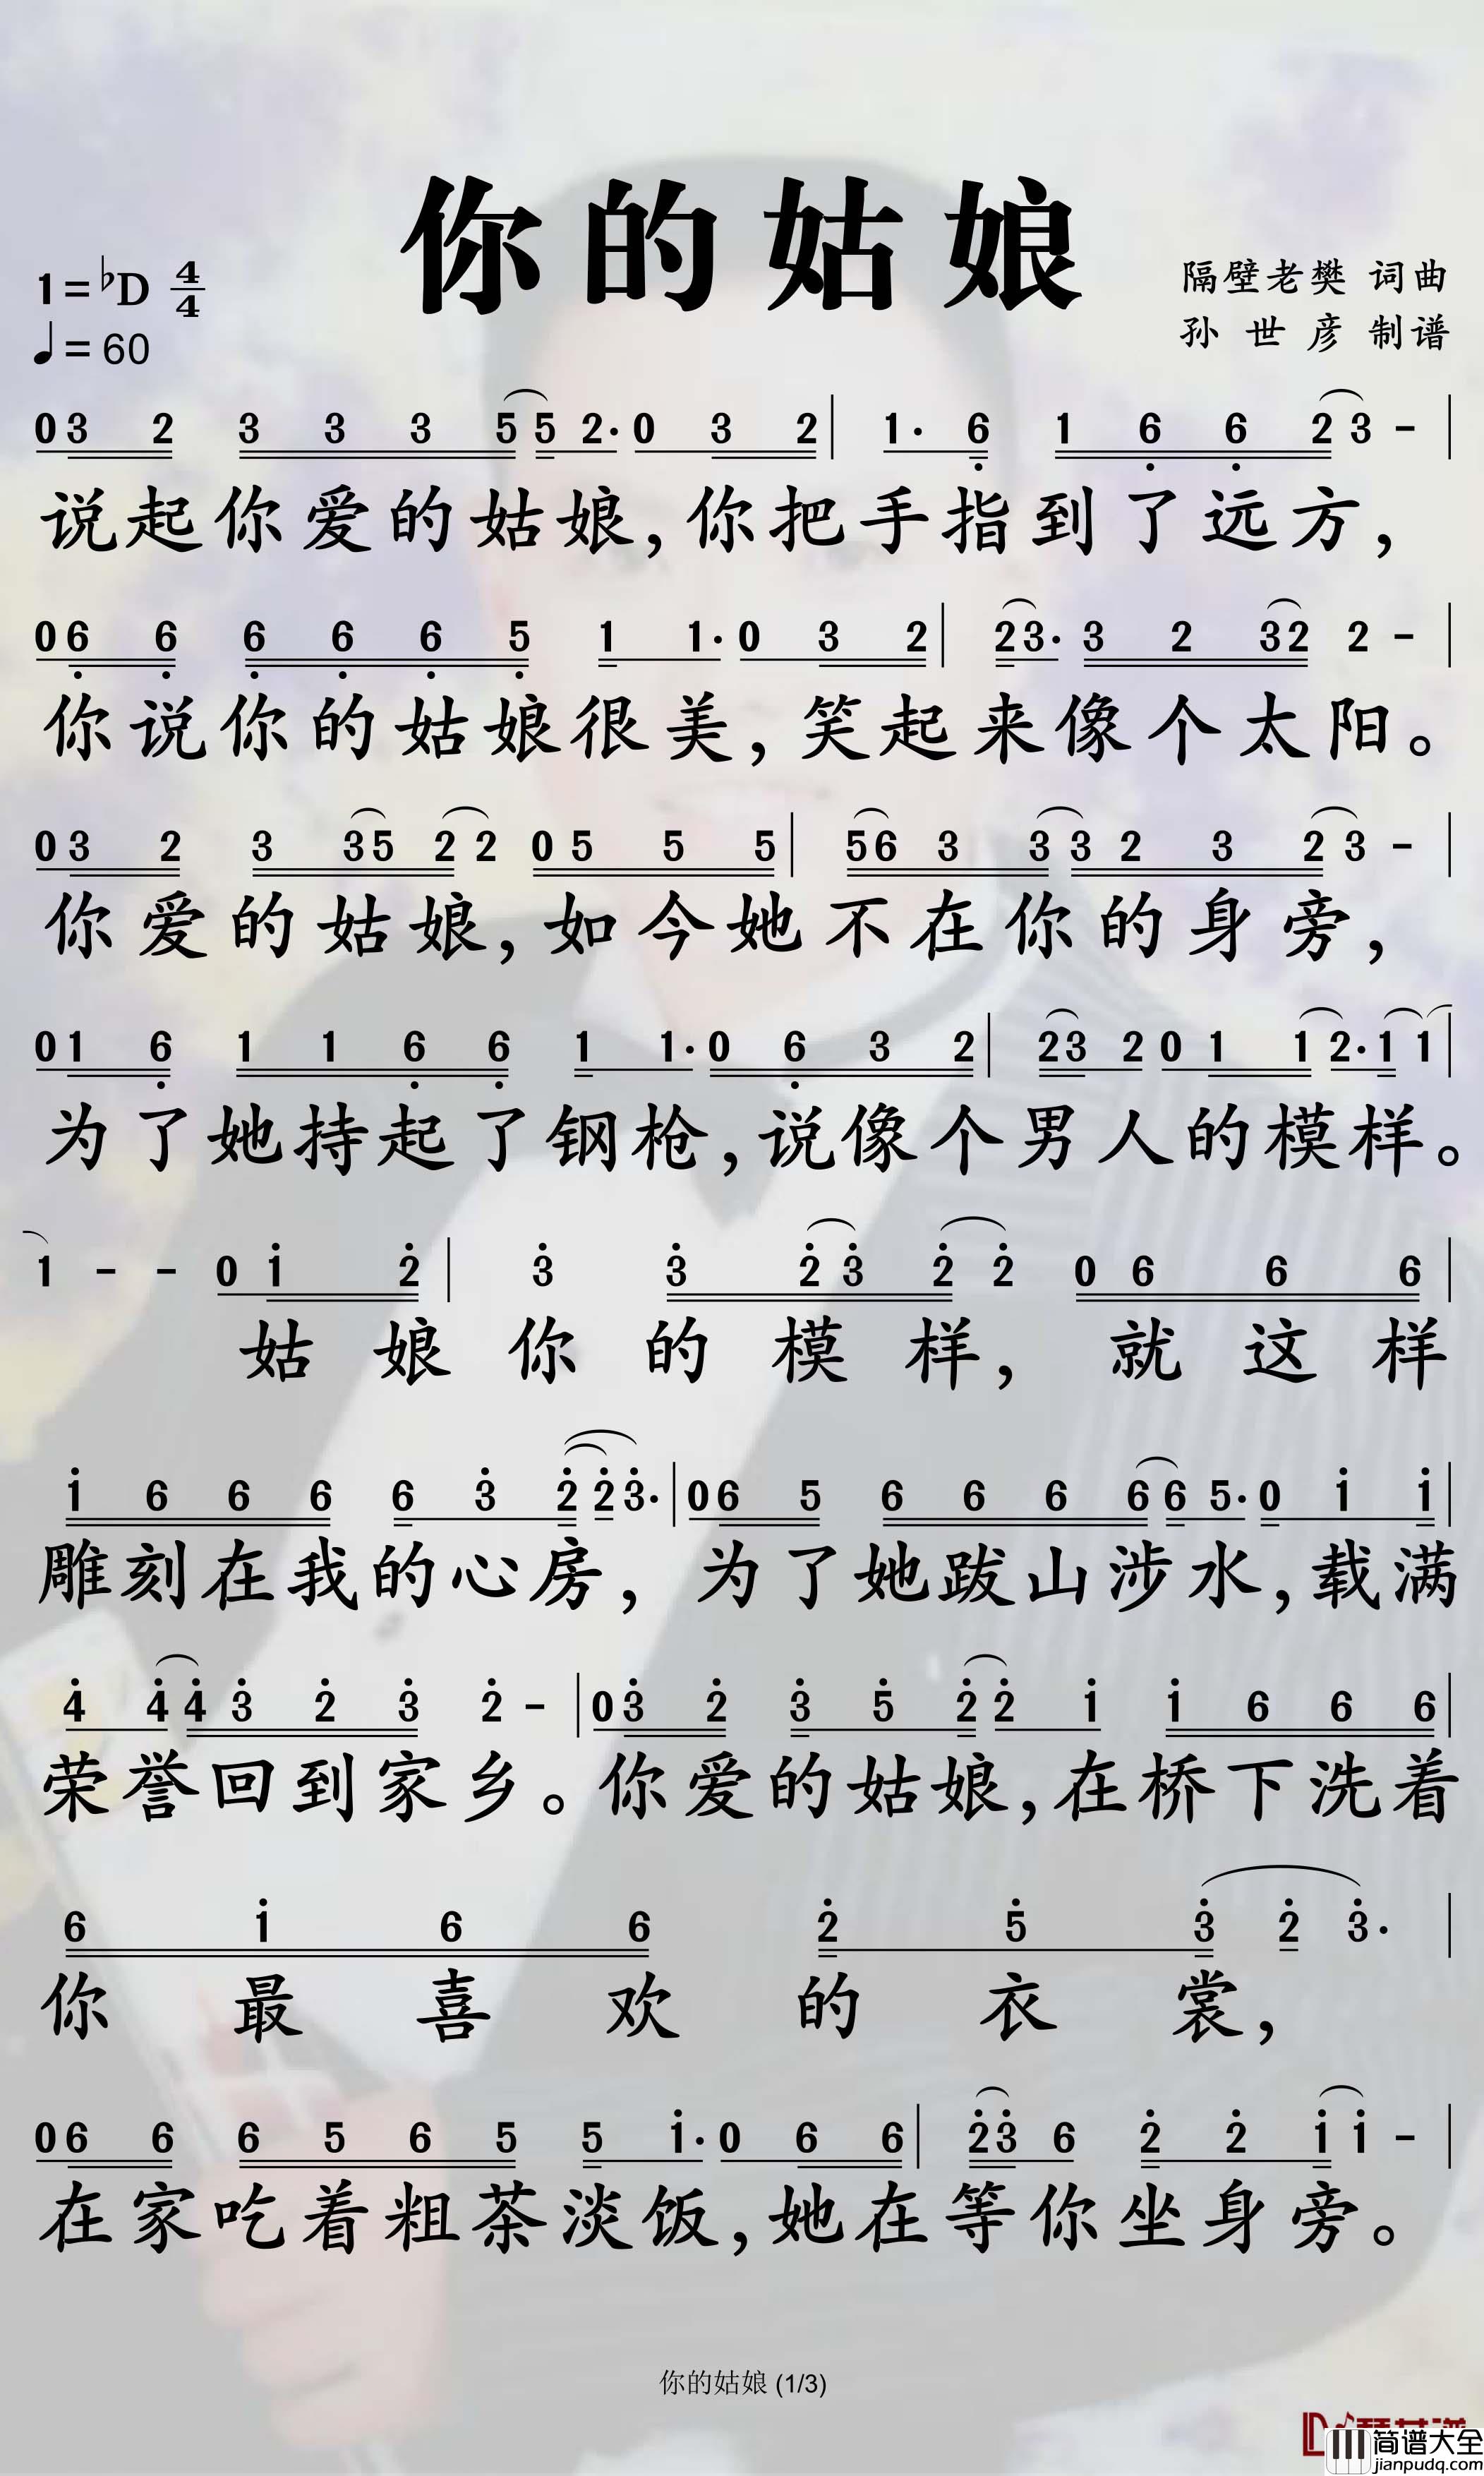 你的姑娘
1=♭D 4/4
♩=60
隔壁老樊 词曲
孙 世 彦 制谱
0 3 2 3 3 3 5 5 2· 0 3 2 | 1· 6̣ 1 6̣ 6̣ 2 3 - |
说起你爱的姑娘,你把手指到了远方,
0 6̣ 6̣ 6̣ 6̣ 6̣ 5̣ 1 1· 0 3 2 | 2 3· 3 2 3 2 2 - |
你说你的姑娘很美,笑起来像个太阳。
0 3 2 3 3 5 2 2 0 5 5 5 | 5 6 3 3 3 2 3 2 3 - |
你爱的姑娘,如今她不在你的身旁,
0 1 6̣ 1 1 6̣ 6̣ 1 1· 0 6̣ 3 2 | 2 3 2 0 1 1 2· 1 1 |
为了她持起了钢枪,说像个男人的模样。
1 - - 0 1̇ 2̇ | 3̇ 3̇ 2̇ 3̇ 2̇ 2̇ 0 6 6 6 |
姑娘你的模样,就这样
1̇ 6 6 6 6 3̇ 2̇ 2̇ 3̇· | 0 6 5 6 6 6 6 6 5· 0 1̇ 1̇ |
雕刻在我的心房,为了她跋山涉水,载满
4̇ 4̇ 4̇ 3̇ 2̇ 3̇ 2̇ - | 0 3̇ 2̇ 3̇ 5̇ 2̇ 2̇ 1̇ 1̇ 6 6 6 |
荣誉回到家乡。你爱的姑娘,在桥下洗着
6 1̇ 6 6 2̇ 5̇ 3̇ 2̇ 3̇· |
你最喜欢的衣裳,
0 6 6 6 5 6 5 5 1̇· 0 6 6 | 2̇ 3̇ 6 2̇ 2̇ 1̇ 1̇ - |
在家吃着粗茶淡饭,她在等你坐身旁。
你的姑娘 (1/3)
简谱大全
jianpudq.com